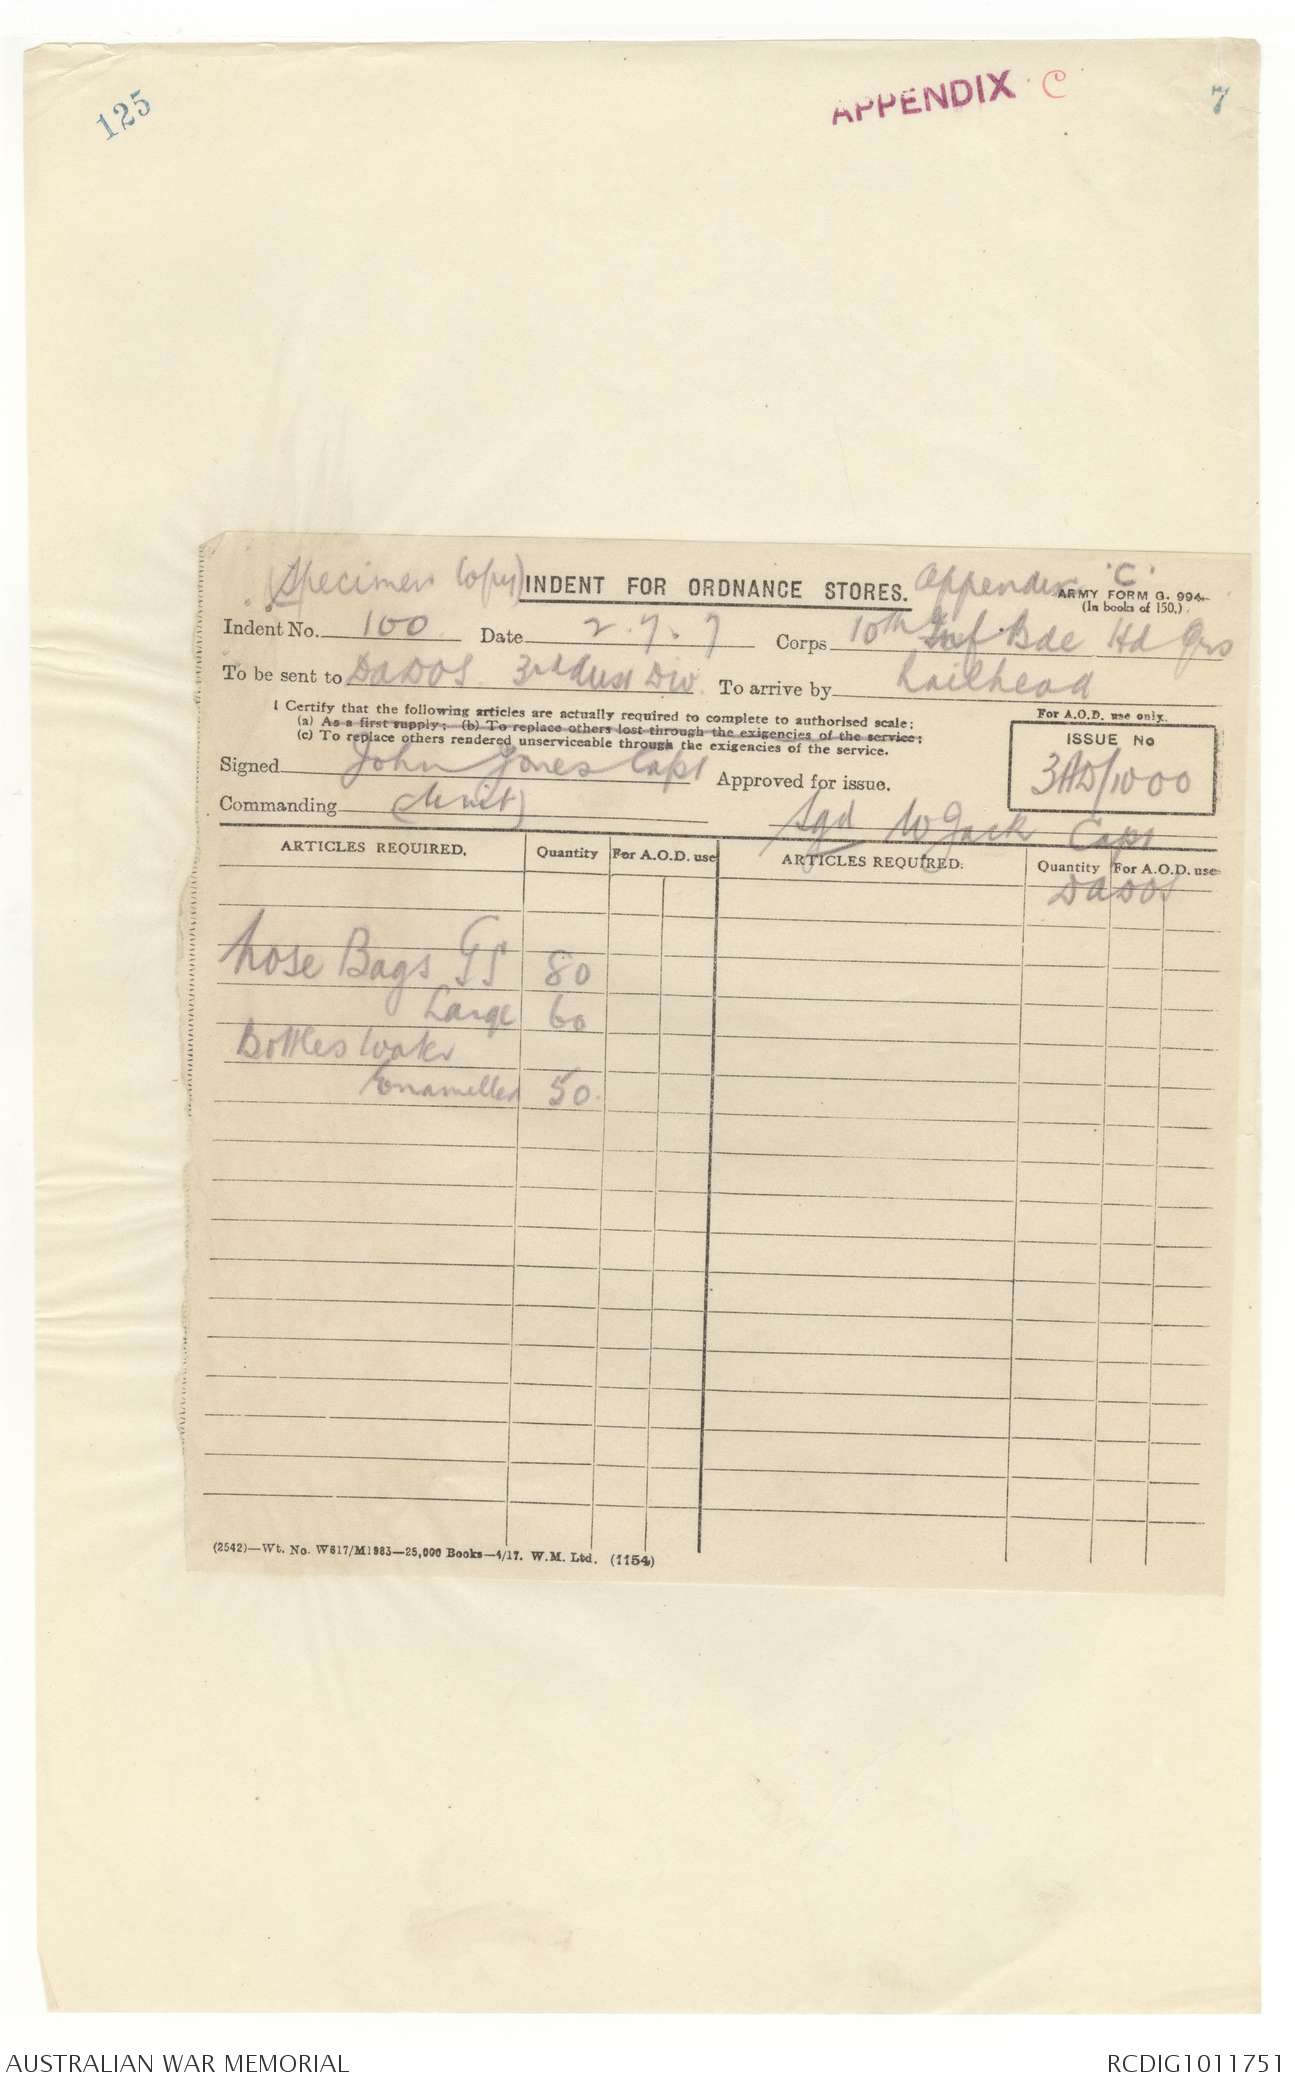 125
APPENDIX C
7
(Specimen Copy) INDENT FOR ORDNANCE STORES. Appendix "C"
ARMY FORM G. 994.
(In books of 150.)
Indent No. 100 Date 2.7.7 Corps 10th Inf Bde Hd Qrs
To be sent to DADOS 3rd Aust Div. To arrive by Railhead
I Certify that the following articles are actually required to complete to authorised scale;
(a) As a first supply; (b) To replace others lost through the exigencies of the service;
(c) To replace others rendered unserviceable through the exigencies of the service.
For A.O.D. use only.
ISSUE No
3AD/1000
Signed John Jones Capt Approved for issue.
Commanding (Unit)
Sgd W Jack Capt
DADOS
ARTICLES REQUIRED. Quantity For A.O.D. use ARTICLES REQUIRED. Quantity For A.O.D. use
Nose Bags GS 80
Large 60
Bottles Water
Enamelled 50.
(2542)—Wt. No. W817/M1983—25,000 Books—4/17. W.M. Ltd. (1154)
AUSTRALIAN WAR MEMORIAL
RCDIG1011751